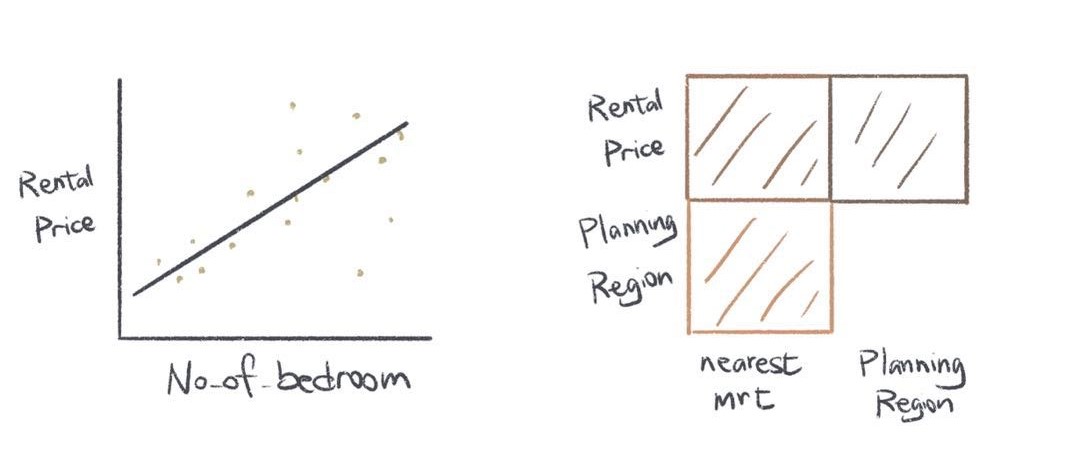 Rental
Price
No_of_bedroom
Rental
Price
Planning
Region
nearest
mrt
Planning
Region